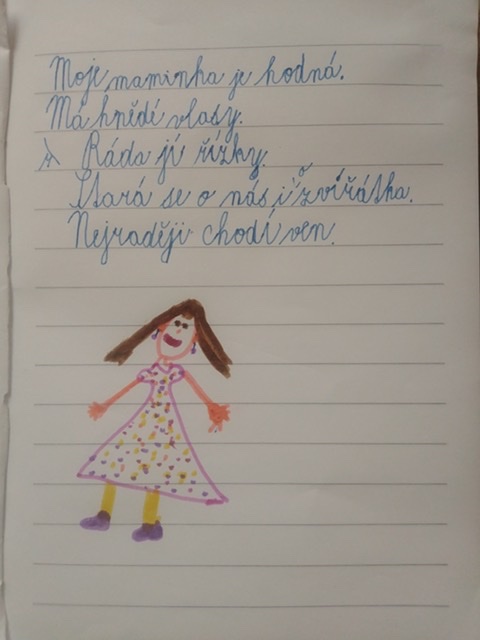 Moje maminka je hodná.
Má hnědé vlasy.
Ráda jí řízky.
Stará se o nás i o zvířátka.
Nejraději chodí ven.